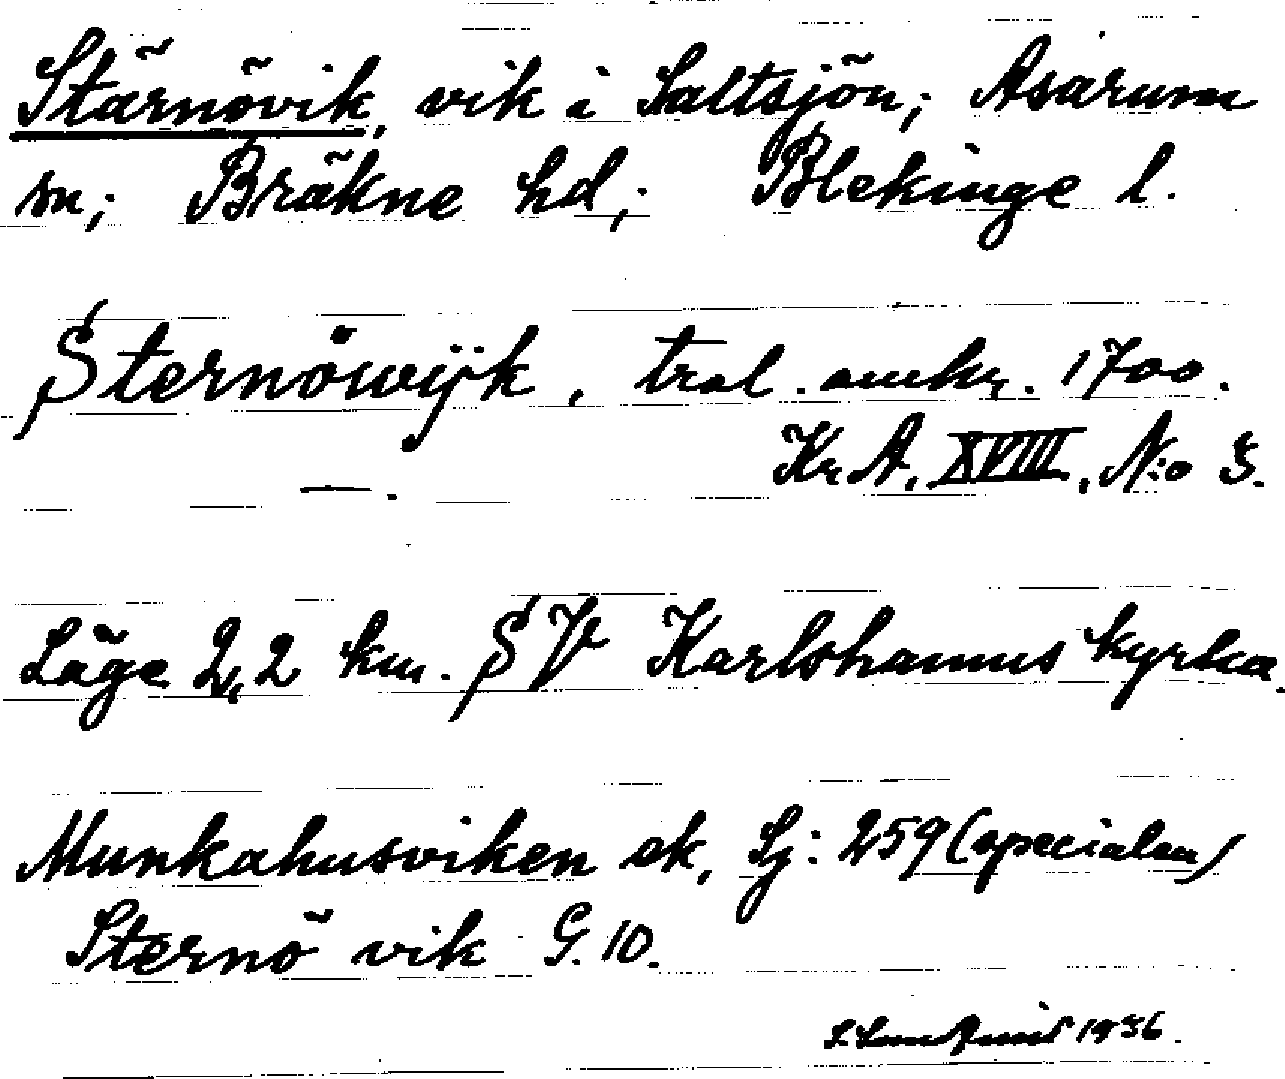 Stärnövik, vik i Saltsjön; Asarum
sn; Bräkne hd; Blekinge l.
Sternöwijk, tral. omkr. 1700.
Kr A, XVIII, N:o 3.
—.
Läge 2,2 km. SV Karlshamns kyrka.
Munkahusviken ek, Sj: 259 (specialen)
Sternö vik G. 10.
1936.